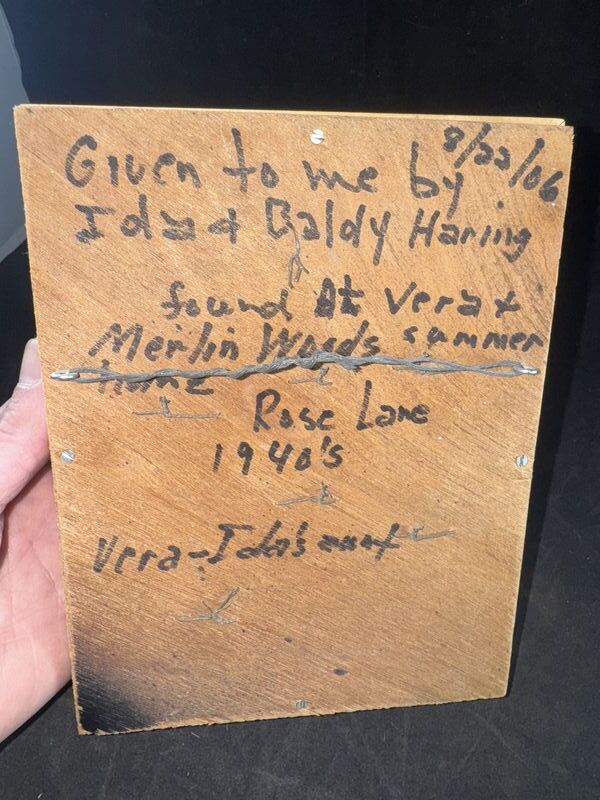 8/22/06
Given to me by
Ida & Baldy Haring
found At Vera &
Merlin Woods summer
home
Rose Lane
1940's
Vera - Ida's aunt